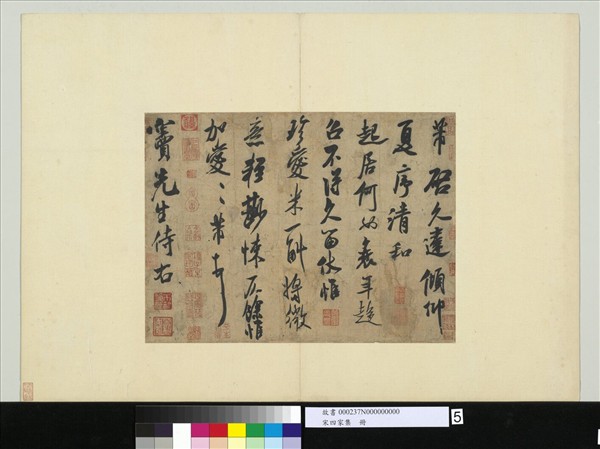 芾啟久違傾仰
夏序清和
起居何如衰年趨
召不得久留伏惟
珍愛米一斛將微
意輕尠悚仄餘惟
加愛〻芾頓首
竇先生侍右
故書 000237N000000000
宋四家集 冊
5